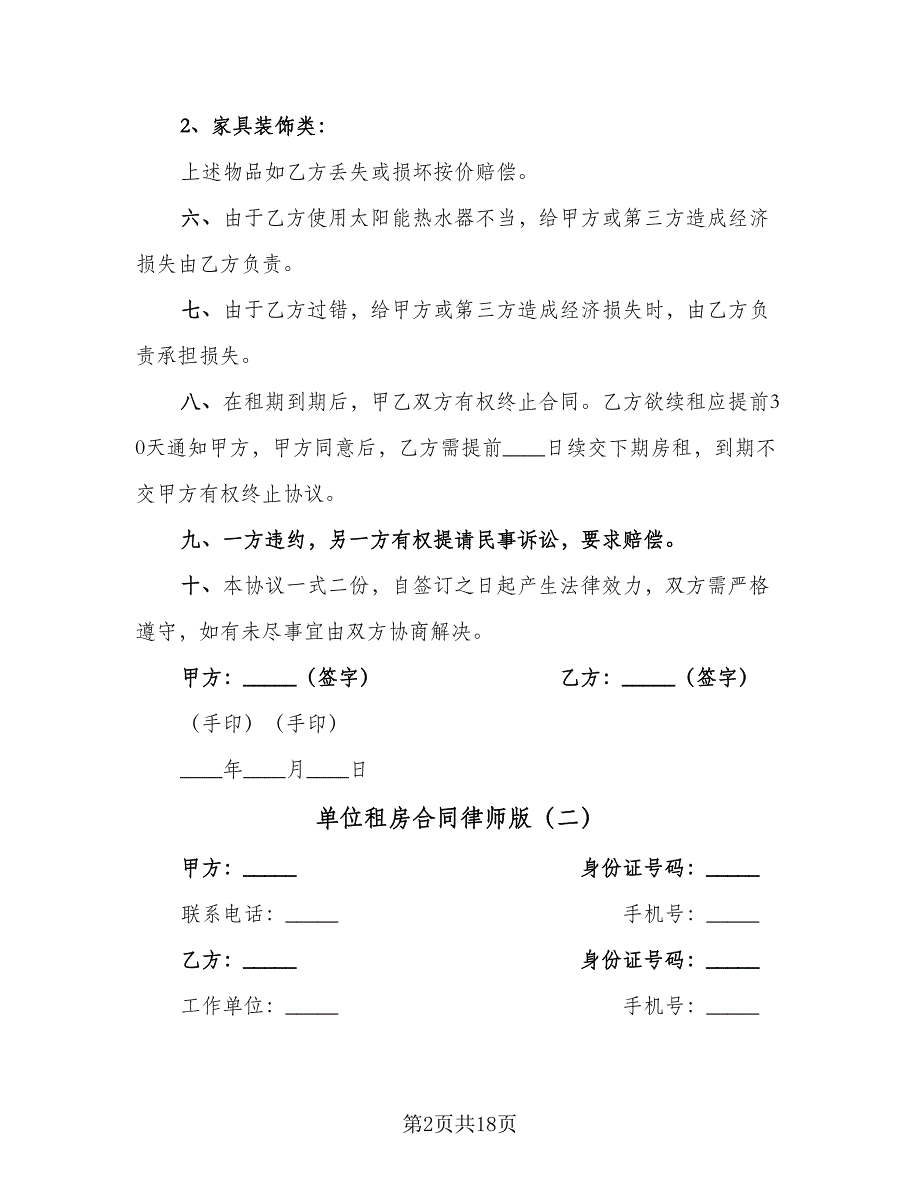 2、家具装饰类：
上述物品如乙方丢失或损坏按价赔偿。
六、由于乙方使用太阳能热水器不当，给甲方或第三方造成经济
损失由乙方负责。
七、由于乙方过错，给甲方或第三方造成经济损失时，由乙方负
责承担损失。
八、在租期到期后，甲乙双方有权终止合同。乙方欲续租应提前3
0天通知甲方，甲方同意后，乙方需提前____日续交下期房租，到期不
交甲方有权终止协议。
九、一方违约，另一方有权提请民事诉讼，要求赔偿。
十、本协议一式二份，自签订之日起产生法律效力，双方需严格
遵守，如有未尽事宜由双方协商解决。
甲方：_____（签字） 乙方：_____（签字）
（手印）（手印）
____年____月____日
单位租房合同律师版（二）
甲方：_____ 身份证号码：_____
联系电话：_____ 手机号：_____
乙方：_____ 身份证号码：_____
工作单位：_____ 手机号：_____
第2页共18页